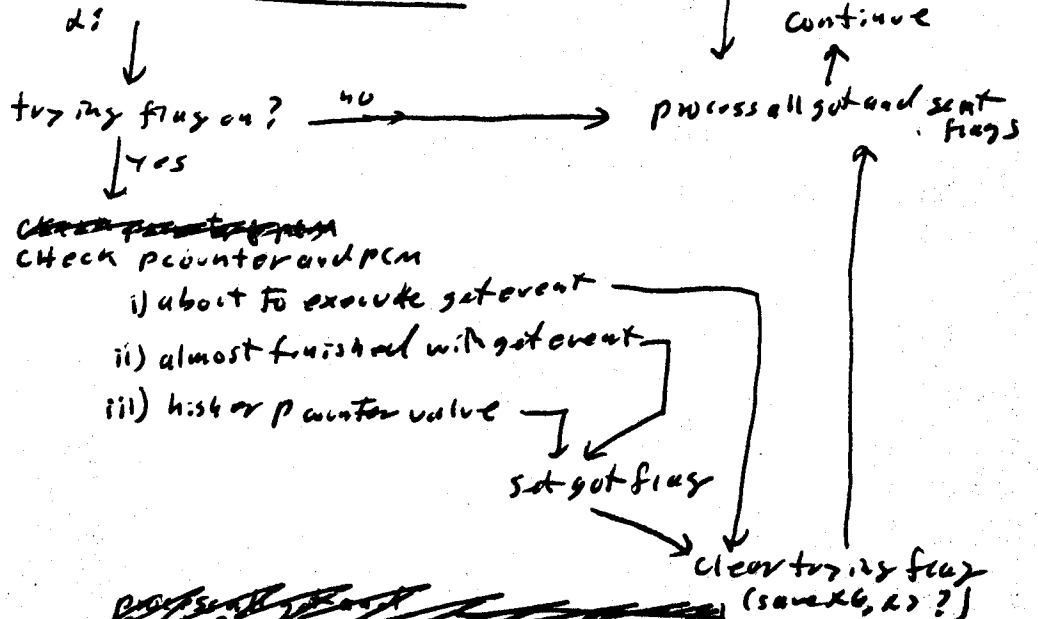 di
continue
trying flag on?
no
process all got and sent
flags
yes
CHECK pcounter and pcm
i) about to execute getevent
ii) almost finished with getevent
iii) higher pcounter value
set got flag
clear trying flag
(save x6, x7 ?)